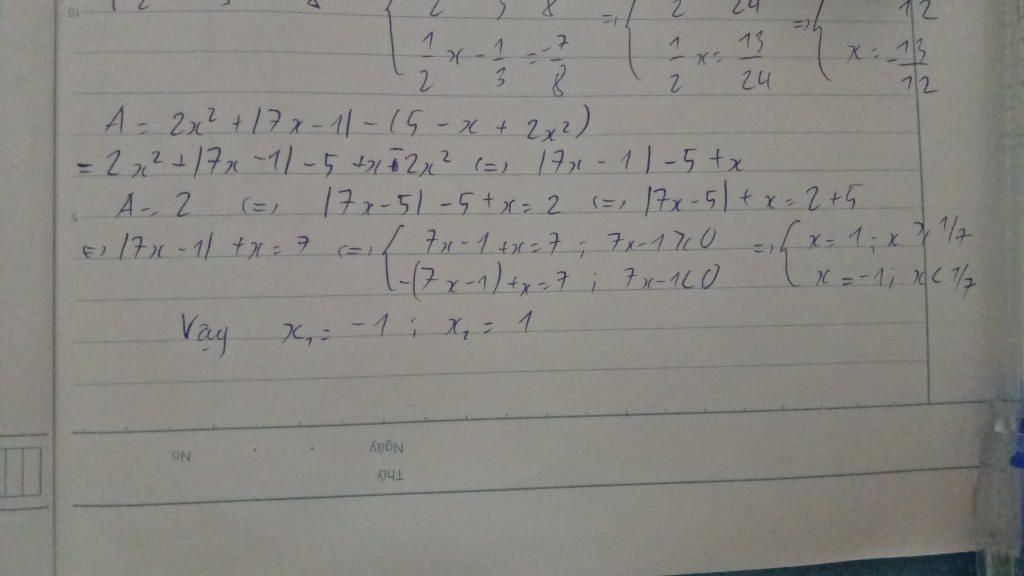 { 2 3 8 => { 2 24 => { 12
1/2 x - 1/3 = -7/8 1/2 x = 13/24 x = -13/12
A = 2x² + |7x - 1| - (5 - x + 2x²)
= 2x² + |7x - 1| - 5 + x - 2x² (=) |7x - 1| - 5 + x
A = 2 (=) |7x - 5| - 5 + x = 2 (=) |7x - 5| + x = 2 + 5
(=) |7x - 1| + x = 7 (=) { 7x - 1 + x = 7 ; 7x - 1 ≥ 0 => { x = 1 ; x ≥ 1/7
-(7x - 1) + x = 7 ; 7x - 1 < 0 x = -1 ; x < 1/7
Vậy x₁ = -1 ; x₂ = 1
No.
Ngày
Thứ